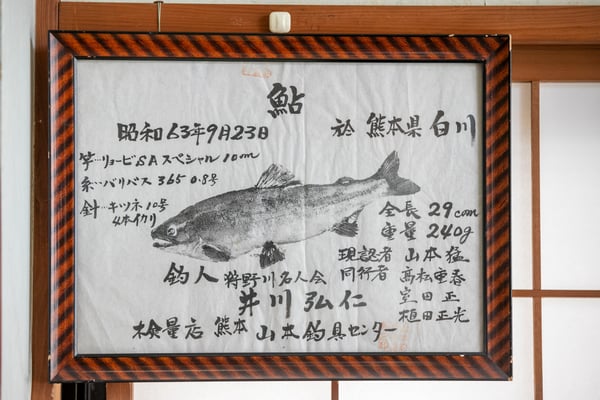 鮎
昭和63年9月23日
於 熊本県 白川
竿…リョービSAスペシャル10m
糸…バリバス 365 0.8号
針…キツネ10号
4本イカリ
全長 29cm
重量 240g
現認者 山本猛
同行者 高松重春
室田正
植田正光
釣人 狩野川名人会
井川弘仁
検量店 熊本 山本釣具センター